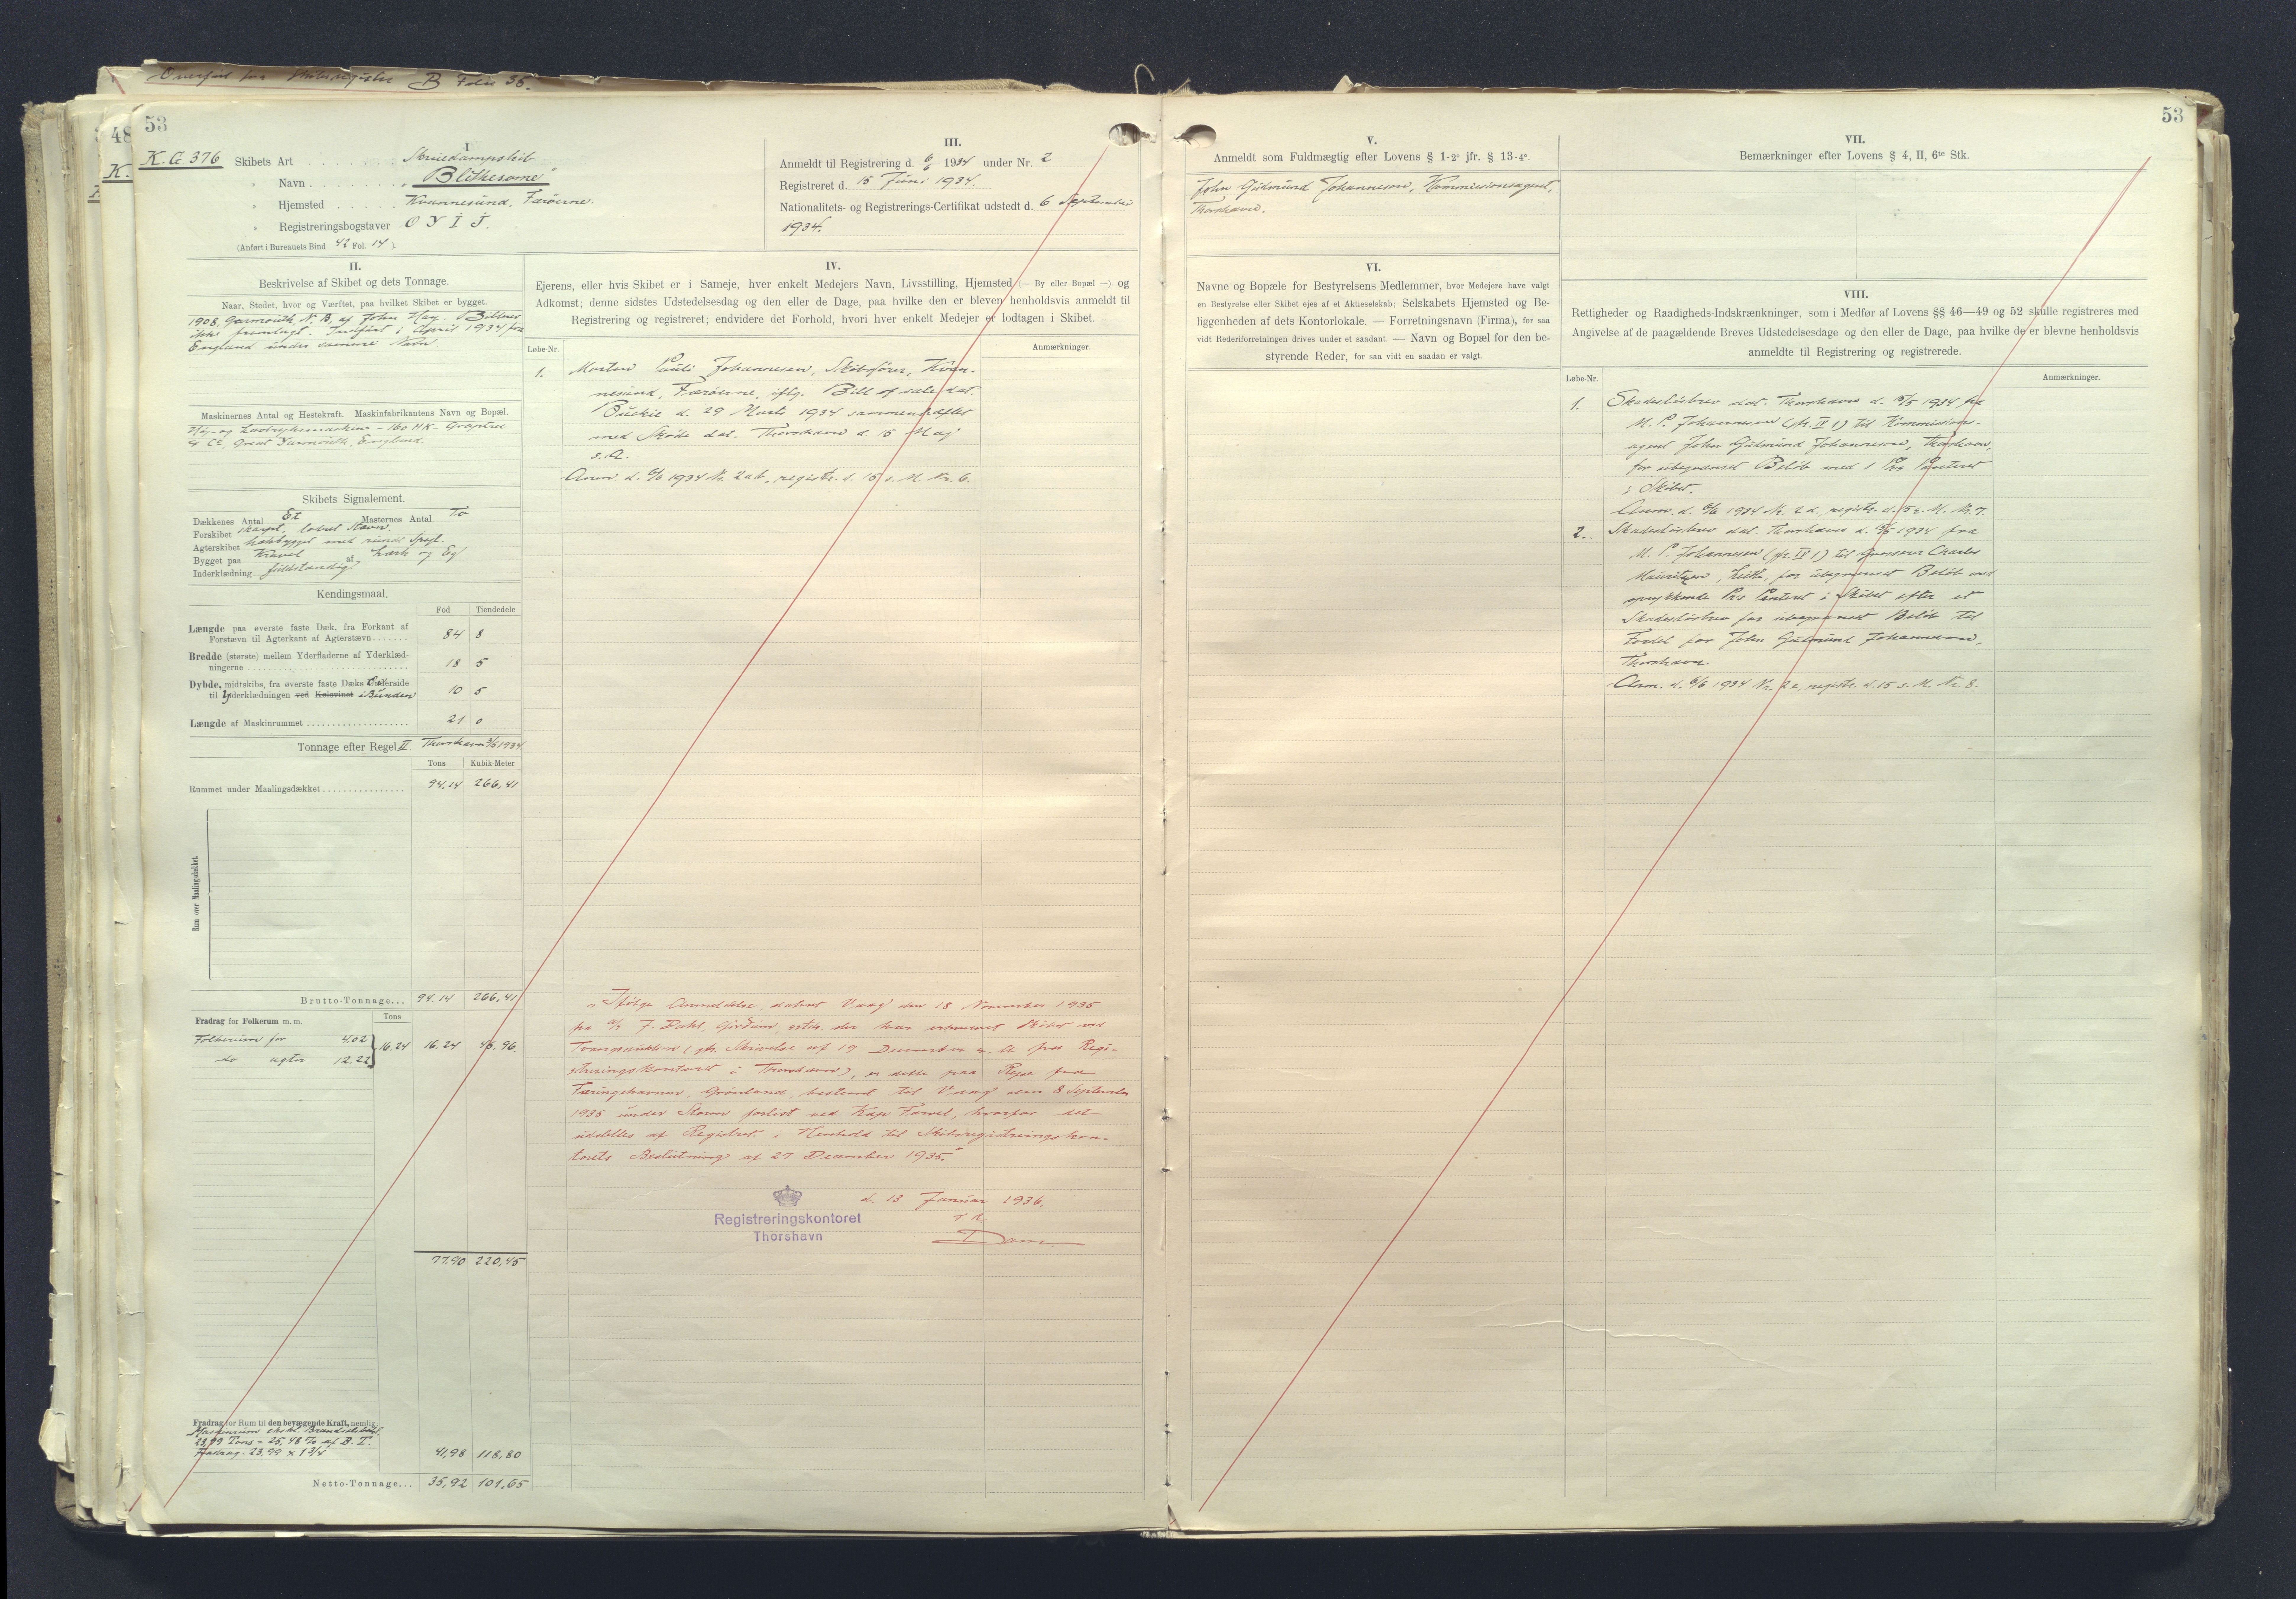 Overført fra Skibsregister B Folio 35.
48
K.
53
K. G 376
I
Skibets Art . . . . . . . . . Skruedampskib
" Navn . . . . . . . . „Blithesome"
" Hjemsted . . . . . . Kvannesund, Færøerne.
" Registreringsbogstaver O Y I J.
(Anført i Bureauets Bind 42 Fol. 14 ).
III.
Anmeldt til Registrering d. 6/6 1934 under Nr. 2
Registreret d. 15 Juni 1934.
Nationalitets- og Registrerings-Certifikat udstedt d. 6 September
1934.
II.
Beskrivelse af Skibet og dets Tonnage.
Naar, Stedet, hvor og Værftet, paa hvilket Skibet er bygget.
1908, Garmouth N. B. af John Hay. Bilbrev
ikke fremlagt. Indført i April 1934 fra
England under samme Navn.
Maskinernes Antal og Hestekraft. Maskinfabrikantens Navn og Bopæl.
Høj- og Lavtryksmaskine - 160 HK -
& Co, Great Yarmouth, England.
Skibets Signalement.
Dækkenes Antal Et Masternes Antal To
Forskibet skarpt, lodret Stævn.
Agterskibet hækbygget med rundt Spejl.
Bygget paa Kravel af Lærk og Eg
Inderklædning fuldstændig.
Kendingsmaal.
Fod Tiendedele
Længde paa øverste faste Dæk, fra Forkant af
Forstævn til Agterkant af Agterstævn....... 84 8
Bredde (største) mellem Yderfladerne af Yderklæd-
ningerne ............................ 18 5
Dybde, midtskibs, fra øverste faste Dæks Underside
til Yderklædningen ved Kølsvinet i Bunden 10 5
Længde af Maskinrummet .................... 21 0
Tonnage efter Regel II Thorshavn 3/5 1934
Tons Kubik-Meter
Rummet under Maalingsdækket................ 94,14 266,41
Rum over Maalingsdækket.
Brutto-Tonnage... 94.14 266,41
Fradrag for Folkerum m. m. Tons
Folkerum for 4.02
do agter 12.22 } 16.24 16.24 45,96.
77.90 220,45
Fradrag for Rum til den bevægende Kraft, nemlig:
Maskinrum ekskl. Brændselsrum
23,99 Tons = 25,48 % af B. T.
Fradrag: 23.99 x 1 3/4 41,98 118,80
Netto-Tonnage... 35,92 101,65
IV.
Ejerens, eller hvis Skibet er i Sameje, hver enkelt Medejers Navn, Livsstilling, Hjemsted (— By eller Bopæl —) og
Adkomst; denne sidstes Udstedelsesdag og den eller de Dage, paa hvilke den er bleven henholdsvis anmeldt til
Registrering og registreret; endvidere det Forhold, hvori hver enkelt Medejer er lodtagen i Skibet.
Løbe-Nr. Anmærkninger.
1. Morten Pauli Johannesen, Skibsfører, Kvan-
nesund, Færøerne, iflg. Bill of sale dat.
Buckie d. 29 Marts 1934 sammenhæftet
med Skøde dat. Thorshavn d. 15 Maj
s. A.
Anm. d. 6/6 1934 Nr. 2ab, registr. d. 15 s. M. Nr. 6.
„Ifølge Anmeldelse, dateret Vaag den 18 November 1935
fra A/S J. Dahl, sstds. der har erhvervet Skibet ved
Tvangsauktion (jfr. Skrivelse af 19 December s. A fra Regi-
streringskontoret i Thorshavn), er dette paa Rejse fra
Færingehavnen, Grønland, bestemt til Vaag den 8 September
1935 under Storm forlist ved Kap Farvel, hvorfor det
udslettes af Registret i Henhold til Skibsregistreringskon-
torets Beslutning af 27 December 1935."
d. 13 Januar 1936.
Registreringskontoret
Thorshavn
Dam.
53
V.
Anmeldt som Fuldmægtig efter Lovens § 1-2° jfr. § 13-4°.
John Gudmund Johannesen, Kommissionsagent,
Thorshavn.
VI.
Navne og Bopæle for Bestyrelsens Medlemmer, hvor Medejere have valgt
en Bestyrelse eller Skibet ejes af et Aktieselskab; Selskabets Hjemsted og Be-
liggenheden af dets Kontorlokale. — Forretningsnavn (Firma), for saa
vidt Rederiforretningen drives under et saadant. — Navn og Bopæl for den be-
styrende Reder, for saa vidt en saadan er valgt.
VII.
Bemærkninger efter Lovens § 4, II, 6te Stk.
VIII.
Rettigheder og Raadigheds-Indskrænkninger, som i Medfør af Lovens §§ 46—49 og 52 skulle registreres med
Angivelse af de paagældende Breves Udstedelsesdage og den eller de Dage, paa hvilke de er blevne henholdsvis
anmeldte til Registrering og registrerede.
Løbe-Nr. Anmærkninger.
1. Skadesløsbrev dat. Thorshavn d. 15/5 1934 fra
M. P. Johannesen (jfr. IV 1) til Kommissions-
agent John Gudmund Johannesen, Thorshavn,
for ubegrænset Beløb med 1 Prs Panteret
i Skibet.
Anm. d. 6/6 1934 Nr. 2 d, registr. d. 15 s. M. Nr. 7.
2. Skadesløsbrev dat. Thorshavn d. 15/5 1934 fra
M. P. Johannesen (jfr. IV 1) til Grosserer Charles
Mauritzen, Leith, for ubegrænset Beløb med
oprykkende Prs Panteret i Skibet efter et
Skadesløsbrev for ubegrænset Beløb til
Fordel for John Gudmund Johannesen,
Thorshavn.
Anm. d. 6/6 1934 Nr. 2 e, registr. d. 15 s. M. Nr. 8.